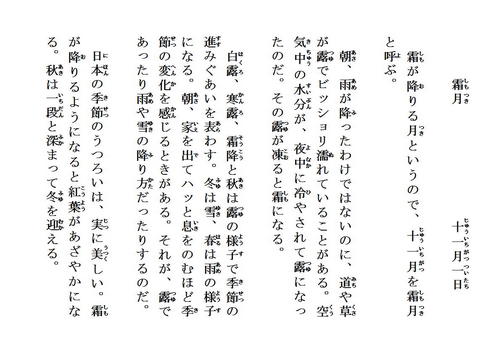 霜月　十一月一日
霜が降りる月というので、十一月を霜月
と呼ぶ。
朝、雨が降ったわけではないのに、道や草
が露でビッショリ濡れていることがある。空
気中の水分が、夜中に冷やされて露になっ
たのだ。その露が凍ると霜になる。
白露、寒露、霜降と秋は露の様子で季節の
進みぐあいを表わす。冬は雪、春は雨の様子
になる。朝、家を出てハッと息をのむほど季
節の変化を感じるときがある。それが、露で
あったり雨や雪の降り方だったりするのだ。
日本の季節のうつろいは、実に美しい。霜
が降りるようになると紅葉があざやかにな
る。秋は一段と深まって冬を迎える。